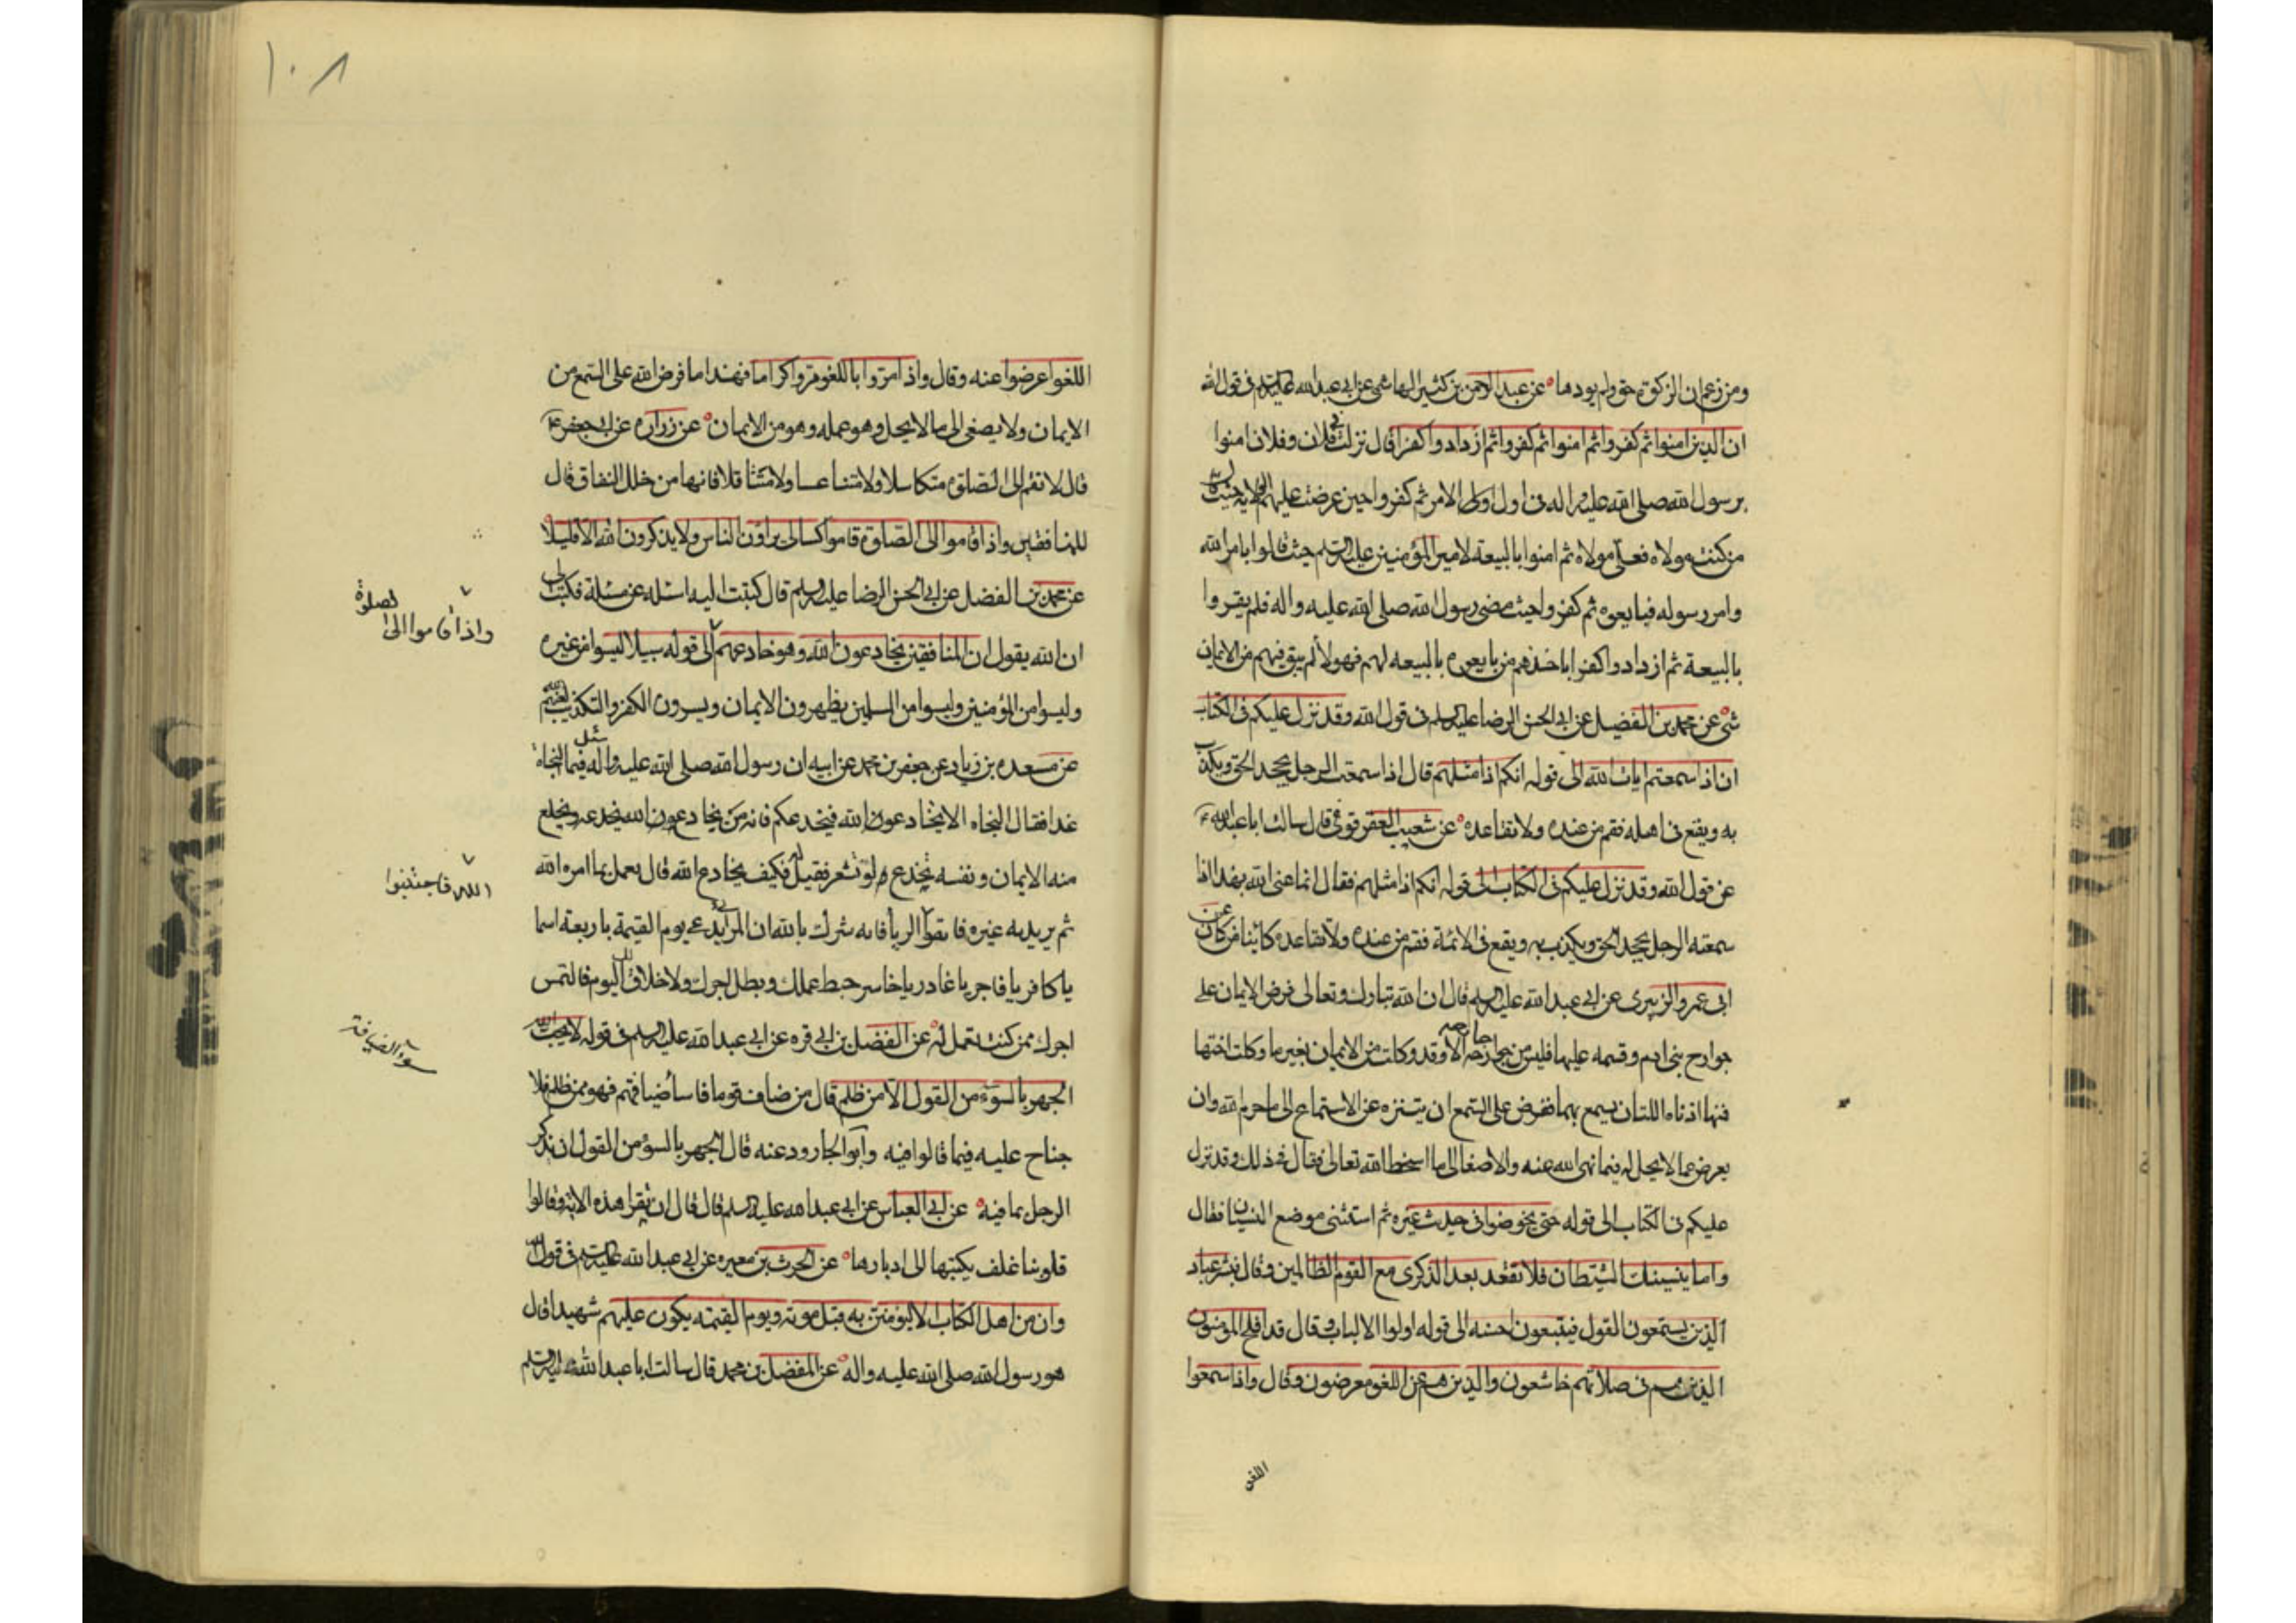 ومن زعم ان الزكوة حق ولم يودها عن عبد الرحمن بن كثير الهاشمي عن ابي عبد الله عليه السلم في قول الله
ان الذين امنوا ثم كفروا ثم امنوا ثم كفروا ثم ازدادوا كفرا قال نزلت في فلان وفلان امنوا
برسول الله صلى الله عليه واله في اول الامر ثم كفروا حين عرضت عليهم الولاية حيث قال
من كنت مولاه فعلي مولاه ثم امنوا بالبيعة لامير المؤمنين عليه السلم حيث قالوا بامر الله
وامر رسوله فبايعوه ثم كفروا حيث مضى رسول الله صلى الله عليه واله فلم يقروا
بالبيعة ثم ازدادوا كفرا باخذهم من بايعوه بالبيعه لهم فهولا لم يبق فيهم من الايمان
شي عن محمد بن الفضيل عن ابي الحسن الرضا عليه السلم في قول الله وقد نزل عليكم في الكتاب
ان اذا سمعتم ايات الله الى قوله انكم اذا مثلهم قال اذا سمعت الرجل يجحد الحق ويكذب
به ويقع في اهله فقم من عنده ولا تقاعده عن شعيب العقرقوفي قال سالت ابا عبد الله ع
عن قول الله وقد نزل عليكم في الكتاب الى قوله انكم اذا مثلهم فقال انما عنى الله بهذا اذا
سمعته الرجل يجحد الحق ويكذب به ويقع في الائمة فقم من عنده ولا تقاعده كائنا من كان عن
ابي عمرو الزبيري عن ابي عبد الله عليه السلم قال ان الله تبارك وتعالى فرض الايمان على
جوارح بني ادم وقسمه عليها فليس من جوارحه جارحه الا وقد وكلت من الايمان بغير ما وكلت اختها
فمنها اذناه اللتان يسمع بهما ففرض على السمع ان يتنزه عن الاستماع الى ما حرم الله وان
يعرض عما لا يحل له فيما نهى الله عنه والاصغا الى ما اسخط الله تعالى فقال في ذلك وقد نزل
عليكم في الكتاب الى قوله حتى يخوضوا في حديث غيره ثم استثنى موضع النسيان فقال
واما ينسينك الشيطان فلا تقعد بعد الذكرى مع القوم الظالمين وقال فبشر عباد
الذين يستمعون القول فيتبعون احسنه الى قوله اولوا الالباب وقال قد افلح المومنون
الذين هم في صلاتهم خاشعون والذين هم عن اللغو معرضون وقال واذا سمعوا
اللغو
١٠٨
اللغو اعرضوا عنه وقال واذا مروا باللغو مروا كراما فهذا ما فرض الله على السمع من
الايمان ولا يصغى الى ما لا يحل وهو عمله وهو من الايمان عن زراره عن ابي جعفر ع
قال لا تقم الى الصلوة متكاسلا ولا متناعسا ولا متثاقلا فانها من خلل النفاق قال
للمنافقين واذا قاموا الى الصلوة قاموا كسالى يراؤن الناس ولا يذكرون الله الا قليلا
عن محمد بن الفضل عن ابي الحسن الرضا عليه السلم قال كتبت اليه اسئله عن مسئلة فكتب الى
ان الله يقول ان المنافقين يخادعون الله وهو خادعهم الى قوله سبيلا ليسوا من غيره
وليسوا من المؤمنين وليسوا من المسلمين يظهرون الايمان ويسرون الكفر والتكذيب لعنهم الله
عن مسعده بن زياد عن جعفر بن محمد عن ابيه ان رسول الله صلى الله عليه واله سئل فيما النجاة
غدا فقال النجاه الا تخادعون الله فيخدعكم فانه من يخادعون الله يخدعه ويخلع
منه الايمان ونفسه يخدع لو تشعر فقيل له فكيف يخادع الله قال يعمل بما امره الله
ثم يريد به غيره فاتقوا الريا فانه شرك بالله ان المرائي يدعى يوم القيمة باربعة اسما
يا كافر يا فاجر يا غادر يا خاسر حبط عملك وبطل اجرك ولا خلاق لك اليوم فالتمس
اجرك ممن كنت تعمل له عن الفضل بن ابي قره عن ابي عبد الله عليه السلم في قوله لا يحب الله
الجهر بالسوء من القول الا من ظلم قال من ضاف قوما فاساء ضيافتهم فهو ممن ظلم فلا
جناح عليه فيما قالوا فيه وابو الجارود عنه قال الجهر بالسؤ من القول ان يذكر
الرجل بما فيه عن ابي العباس عن ابي عبد الله عليه السلم قال قال ان يقرا هذه الاية وقالوا
قلوبنا غلف يكتبها الى ادبارها عن الحرث بن مغيره عن ابي عبد الله عليه السلم في قول الله
وان من اهل الكتاب الا ليؤمنن به قبل موته ويوم القيمه يكون عليهم شهيدا قال
هو رسول الله صلى الله عليه واله عن المفضل بن محمد قال سالت ابا عبد الله عليه السلم
واذا قاموا الى الصلوة
الله فاجتنبوا
سوء الضيافة